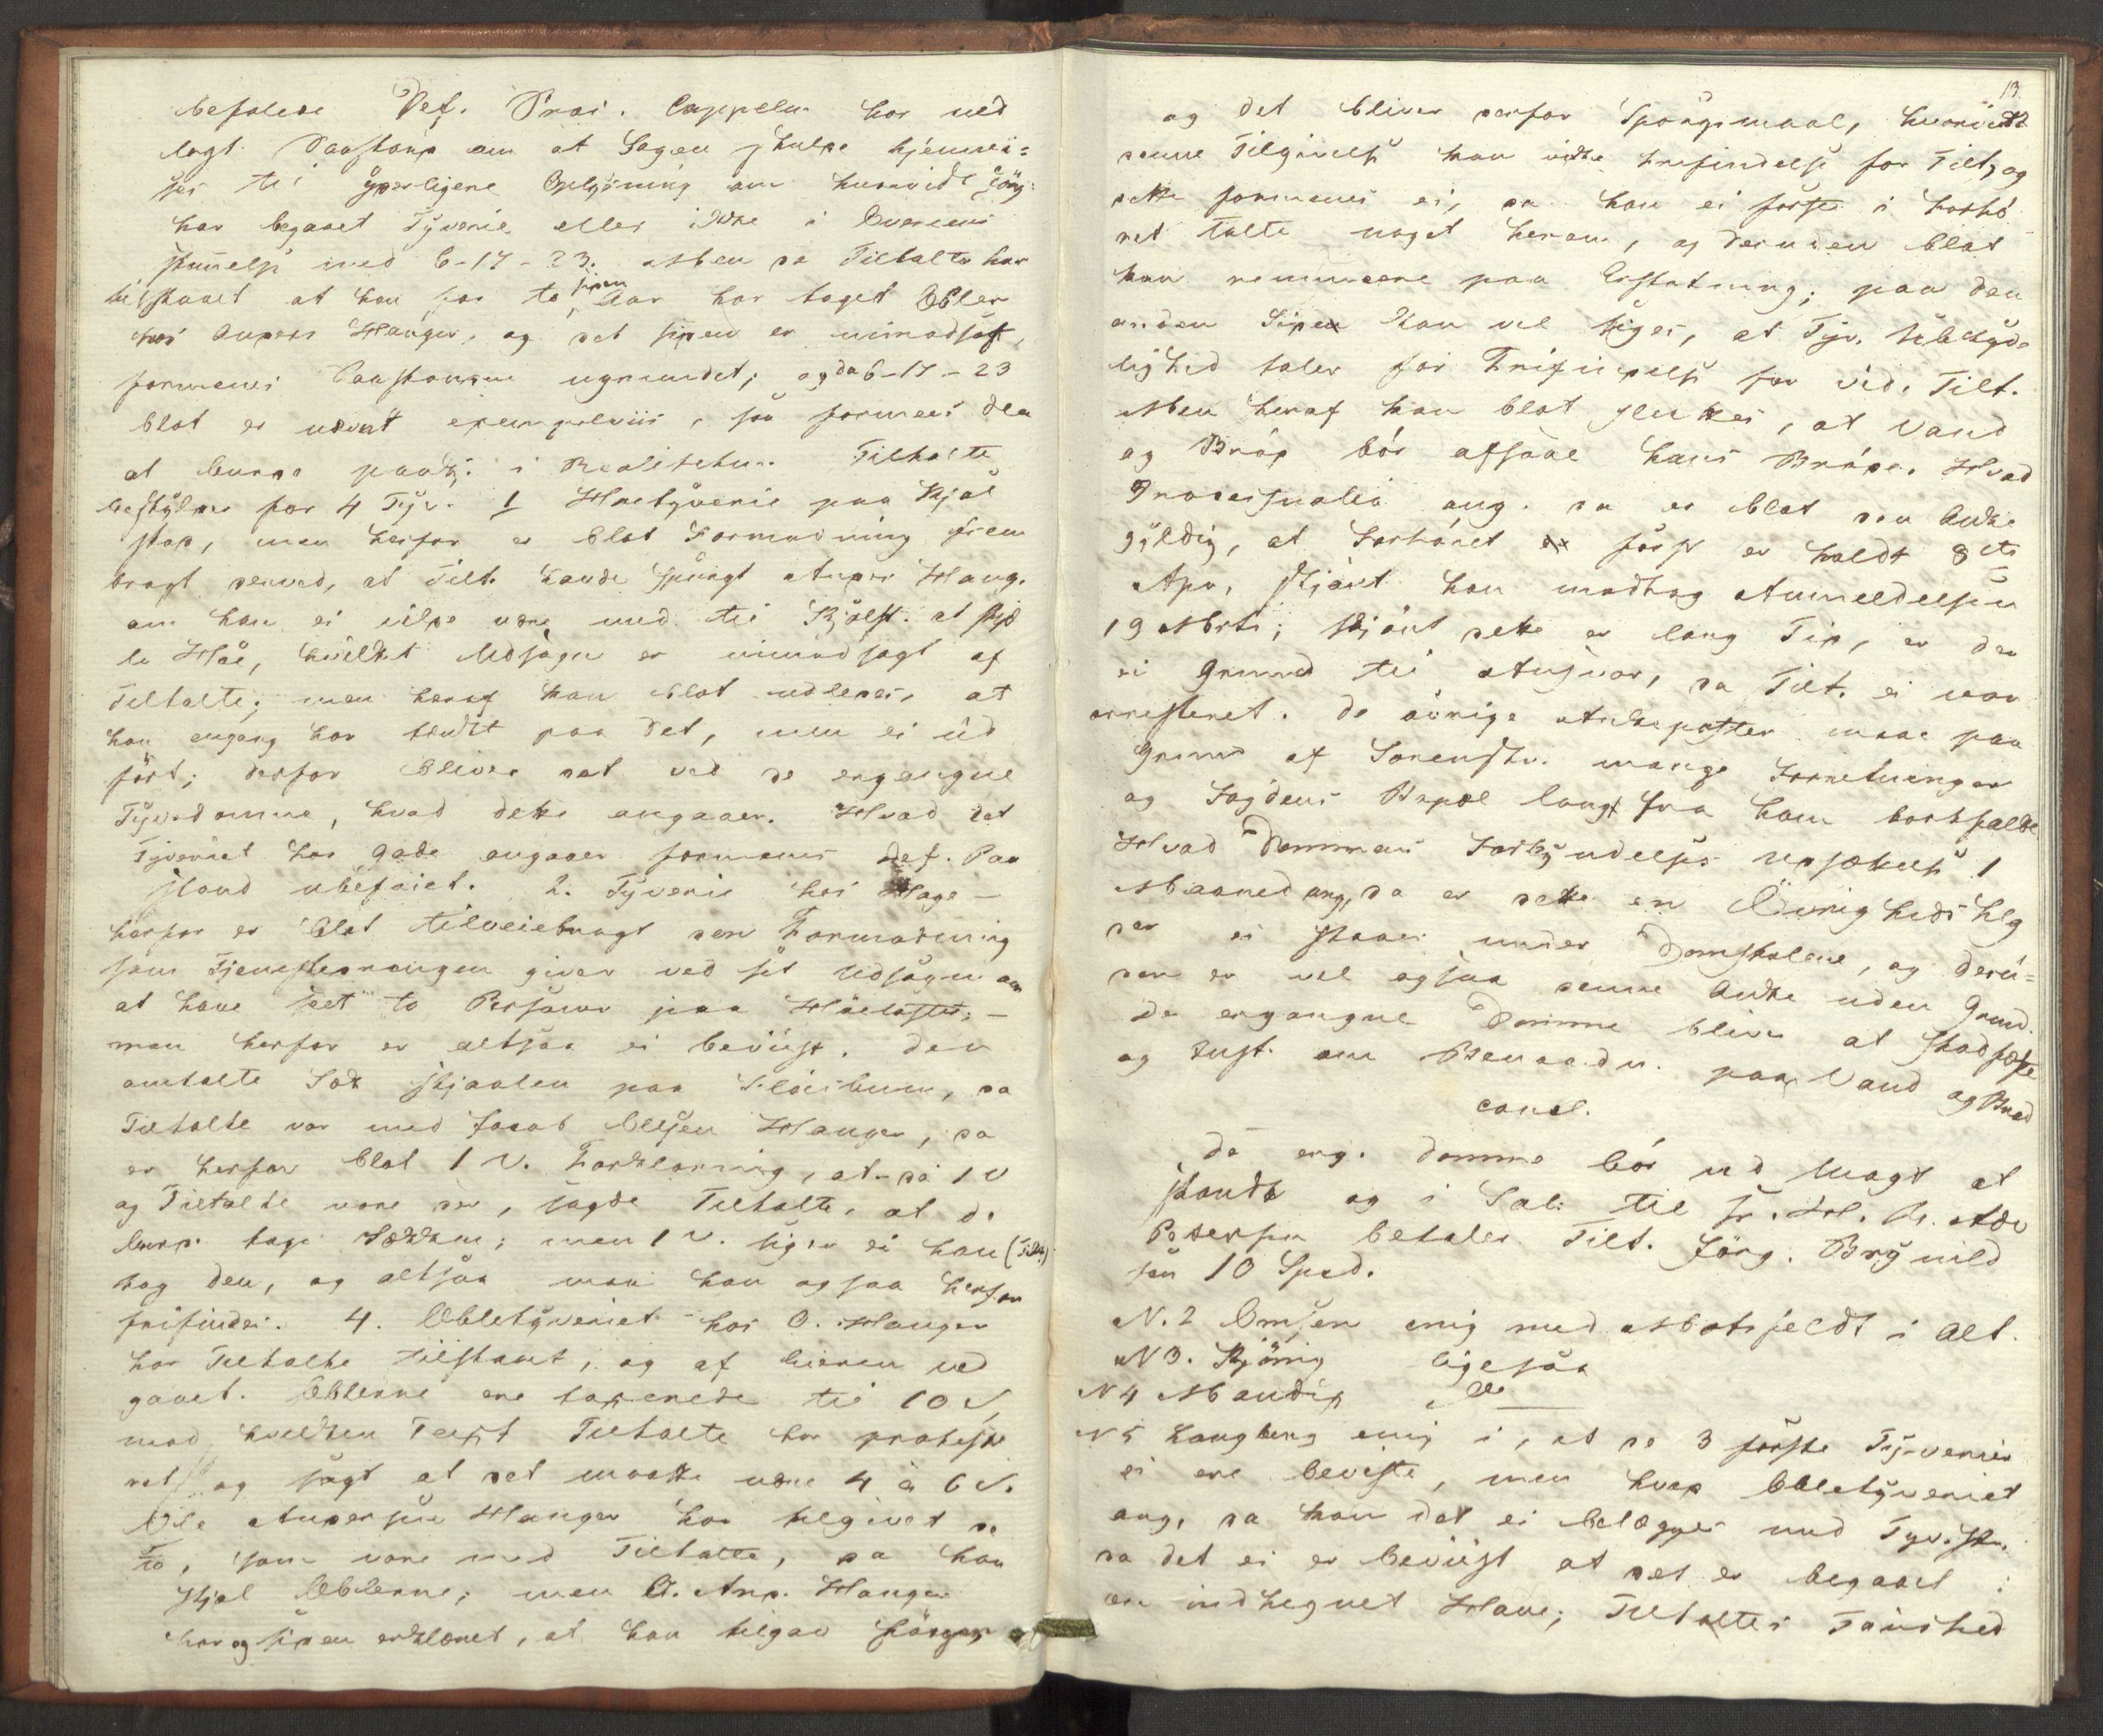 befalede Def. Proc. Cappelen har ned
lagt Paastand om at Sagen skulde hjemvi=
ses til yderligere Oplysning om hvorvidt Jörg.
har begaaet Tyverie eller ikke i Overeens
stemmelse med 6-17-23. Men da Tiltalte har
tilstaaet at han for to siden Aar har taget Æbler
hos Anders Hanger, og det siden er uimodsagt,
formenes Paastanden ugrundet; og da 6-17-23
blot er nævnt exempelviis, saa formenes den
at burde paadk. i Realiteten. Tiltalte
beskyldes for 4 Tyv. 1 Høetyverie paa Kjøl
stad, men herfor er blot Formodning frem
bragt derved, at Tilt. havde spurgt Anders Hang.
om han ei vilde være med til Kjölst. at stjæ
le Höe, hvilket Udsagn er uimodsagt af
Tiltalte; men heraf kan blot udledes, at
han engang har tænkt paa det, men ei ud
fört; derfor bliver det ved de ergangne
Tyvsdomme, hvad dette angaaer. Hvad det
Tyveriet hos Gade angaaer formenes Def. Paa
stand ubeföiet. 2. Tyverie hos Hage –
herfor er blot tilveiebragt den Formodning
som Tjenestedrengen giver ved sit Udsagn om
at have seet to Personer paa Höeloftet; –
men herfor er altsaa ei beviist. Den
omtalte Sæk stjaalen paa , da
Tiltalte var med Jacob Olsen Hanger, da
er herfor blot 1 V. Forklaring, at da 1 V
og Tiltalte vare der, sagde Tiltalte, at de
burde tage Sækken; men 1 V. siger ei han (Tilt.)
tog den, og altsaa maa han ogsaa herfor
frifindes. 4. Æbletyveriet hos O. Hanger
har Tiltalte tilstaaet, og af  ved
gaaet. Æblerne ere taxerede til 10 s,
mod hvilken Taxt Tiltalte har proteste
ret og sagt at det maatte være 4 à 6 s.
Ole Andersen Hanger har tilgivet de
to, som vare med Tiltalte, da han
stjal Æblerne; men O. And. Hanger
har og siden erklæret, at han tilgav Jörgen
13.
og det bliver derfor Spörgsmaal, hvorvidt
denne Tilgivelse kan virke Frifindelse for Tilt, og
dette formenes ei, da han ei förste i Forhö
ret talte noget herom, og desuden blot
kan renuncere paa Erstatning; paa den
anden Side kan vel siges, at Tyv. Ubetyde
lighed taler for Frifindelse for vid. Tilt.
Men heraf kan blot sluttes, at Vand
og Bröd bör afsone hans Bröde. Hvad
Processualia ang. da er blot den Anke
gyldig, at Forhöret först er holdt 8de
Apr, skjönt han modtog Anmeldelsen
19 Marts; skjönt dette er lang Tid, er der
ei Grund til Ansvar, da Tilt. ei var
arresteret. De övrige Ankeposter maae paa
Grund af Sorenskr. mange Forretninger
og Fogdens Bopæl langt fra ham bortfalde
Hvad Dommens Forkyndelses Udsættelse 1
Maaned ang, da er dette en Övrigheds Hlg
der ei staaer under Domstolene, og desu=
den er vel ogsaa denne Anke uden Grund.
De ergangne Domme blive at stadfæste
og Just. om Benaadn. paa Vand og Bröd
concl.
De erg. Domme bör ved Magt at
stande og i Sal: til Pr. H. A.
Pedersen betaler Tilt. Jörg. Brynild
sen 10 Spd.
N. 2 Omsen enig med Motzfeldt i Alt.
N 3. Kjönig ligesaa
N 4 Mandix do
N 5 Langberg enig i, at de 3 förste Tyverier
ei ere beviste, men hvad Æbletyveriet
ang, da kan det ei belægges med Tyv.str.
da det ei er beviist at det er begaaet i
en indhegnet Have; Tiltaltes Taushed